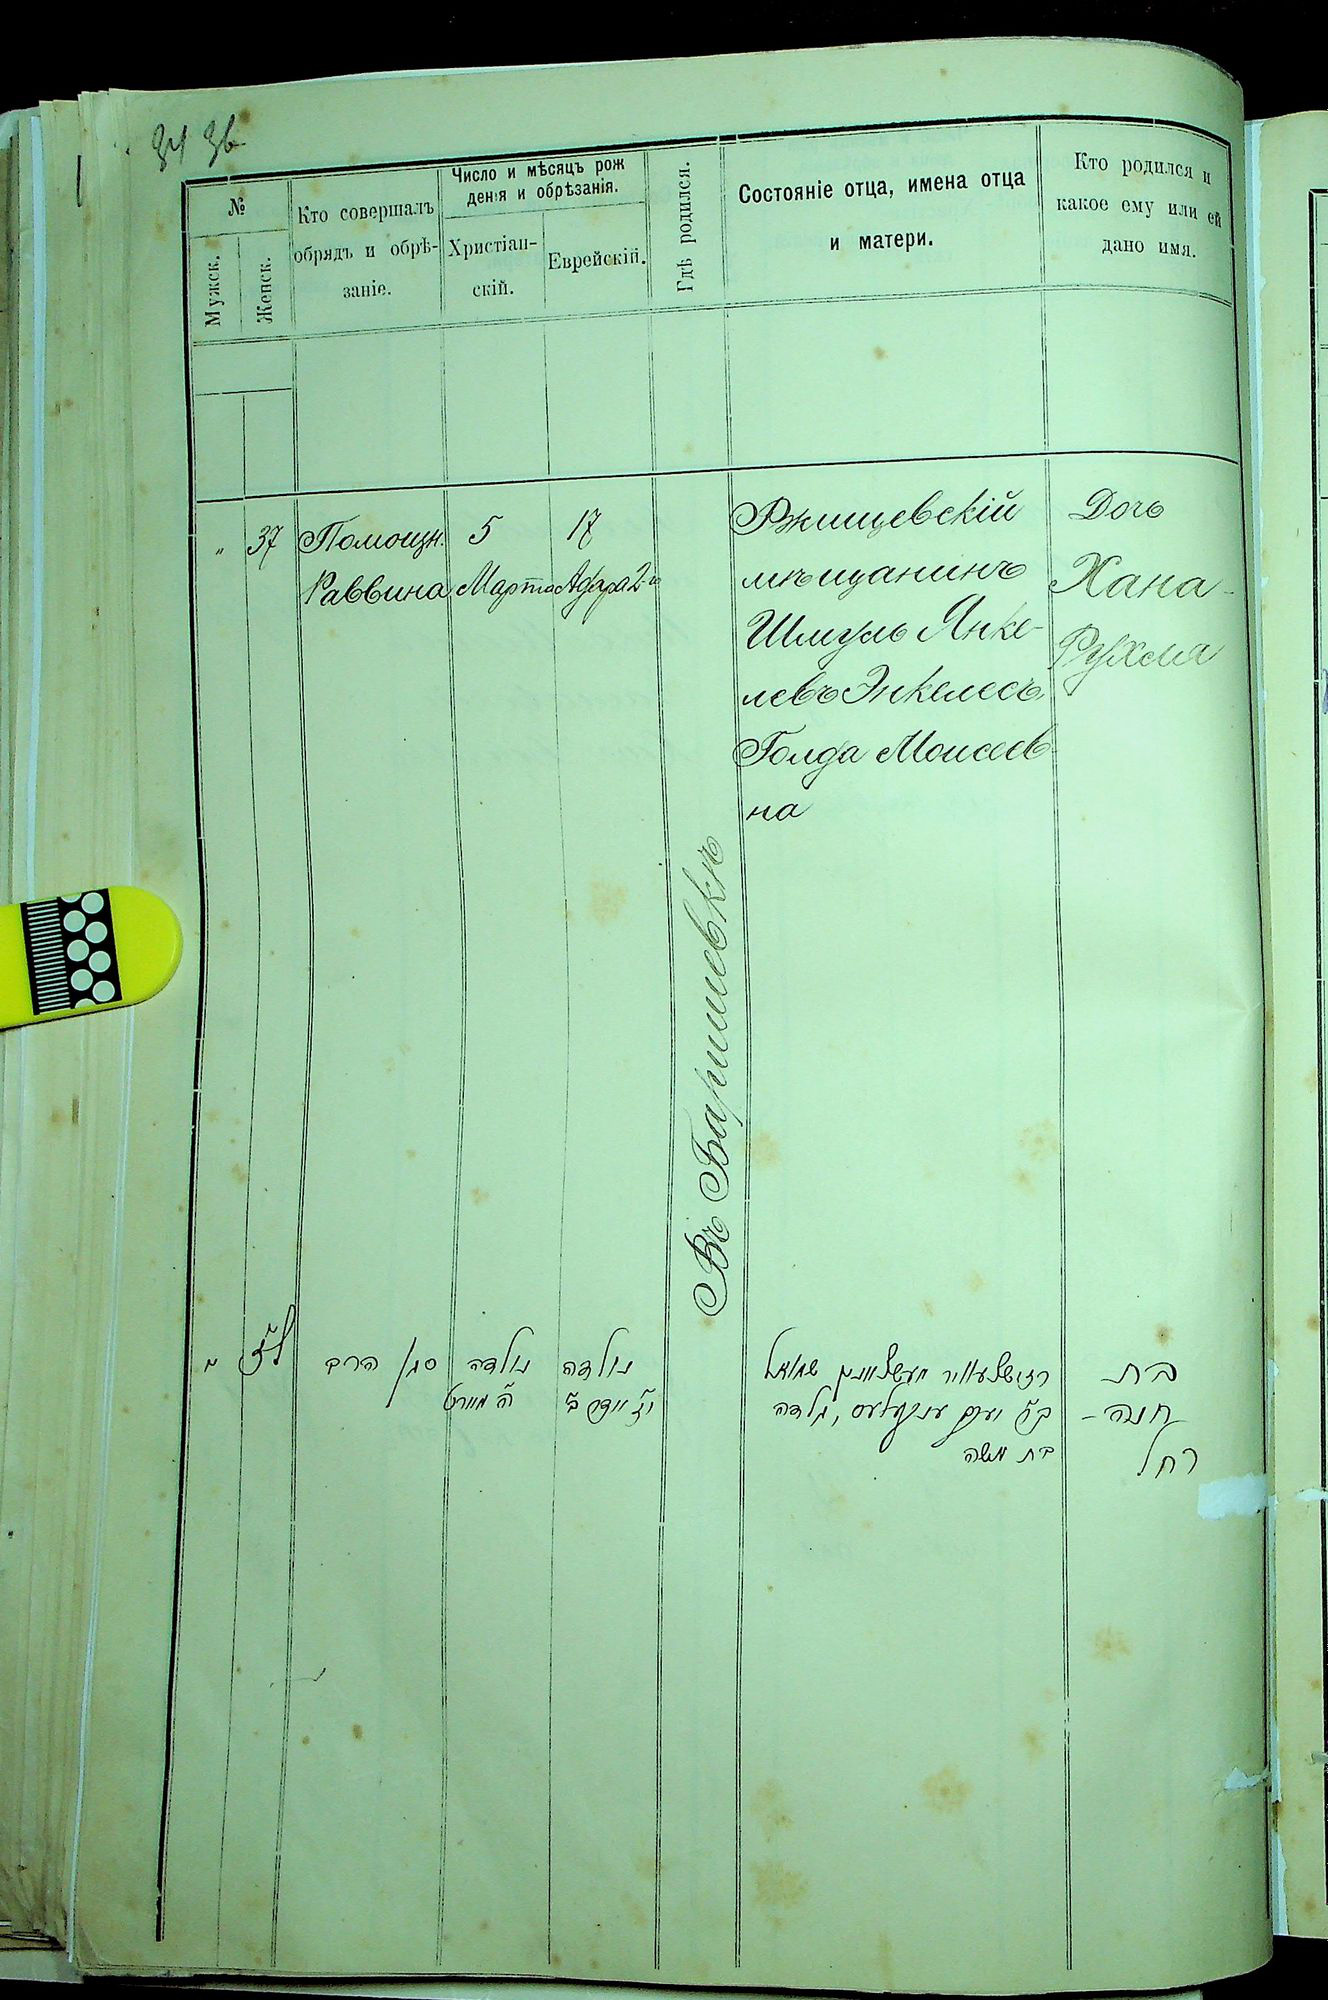 34 36
№
Мужск.
Женск.
Кто совершалъ
обрядъ и обрѣ-
заніе.
Число и мѣсяцъ рож
денія и обрѣзанія.
Христіан-
скій.
Еврейскій.
Гдѣ родился.
Состояніе отца, имена отца
и матери.
Кто родился и
какое ему или ей
дано имя.
" 37
Помощн.
Раввина
5
Марта
17
Адара 2-го
Въ Баришевкѣ
Ржищевскій
мѣщанинъ
Шмуль Янке-
левъ Энкелесъ,
Голда Моисеев-
на
Дочь
Хана-
Рухля
" ל״ז
סגן הרב
נולדה
ה׳ מארט
נולדה
י״ז אדר ב׳
שמואל
ב״ר יעקב ענקעלעס, גולדה
בת משה
בת
חנה-
רחל